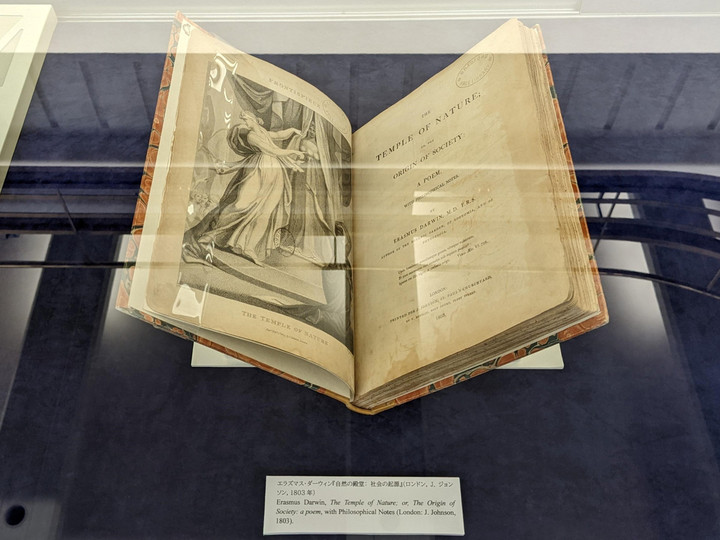 FRONTISPIECE
THE TEMPLE OF NATURE
THE
TEMPLE OF NATURE;
OR, THE
ORIGIN OF SOCIETY
A POEM,
WITH PHILOSOPHICAL NOTES.
BY
ERASMUS DARWIN, M.D. F.R.S.
AUTHOR OF THE BOTANIC GARDEN, OF ZOONOMIA, AND OF
PHYTOLOGIA.
LONDON:
1803.
エラズマス・ダーウィン『自然の殿堂: 社会の起源』(ロンドン, J. ジョン
ソン, 1803 年)
Erasmus Darwin, The Temple of Nature; or, The Origin of
Society: a poem, with Philosophical Notes (London: J. Johnson,
1803).